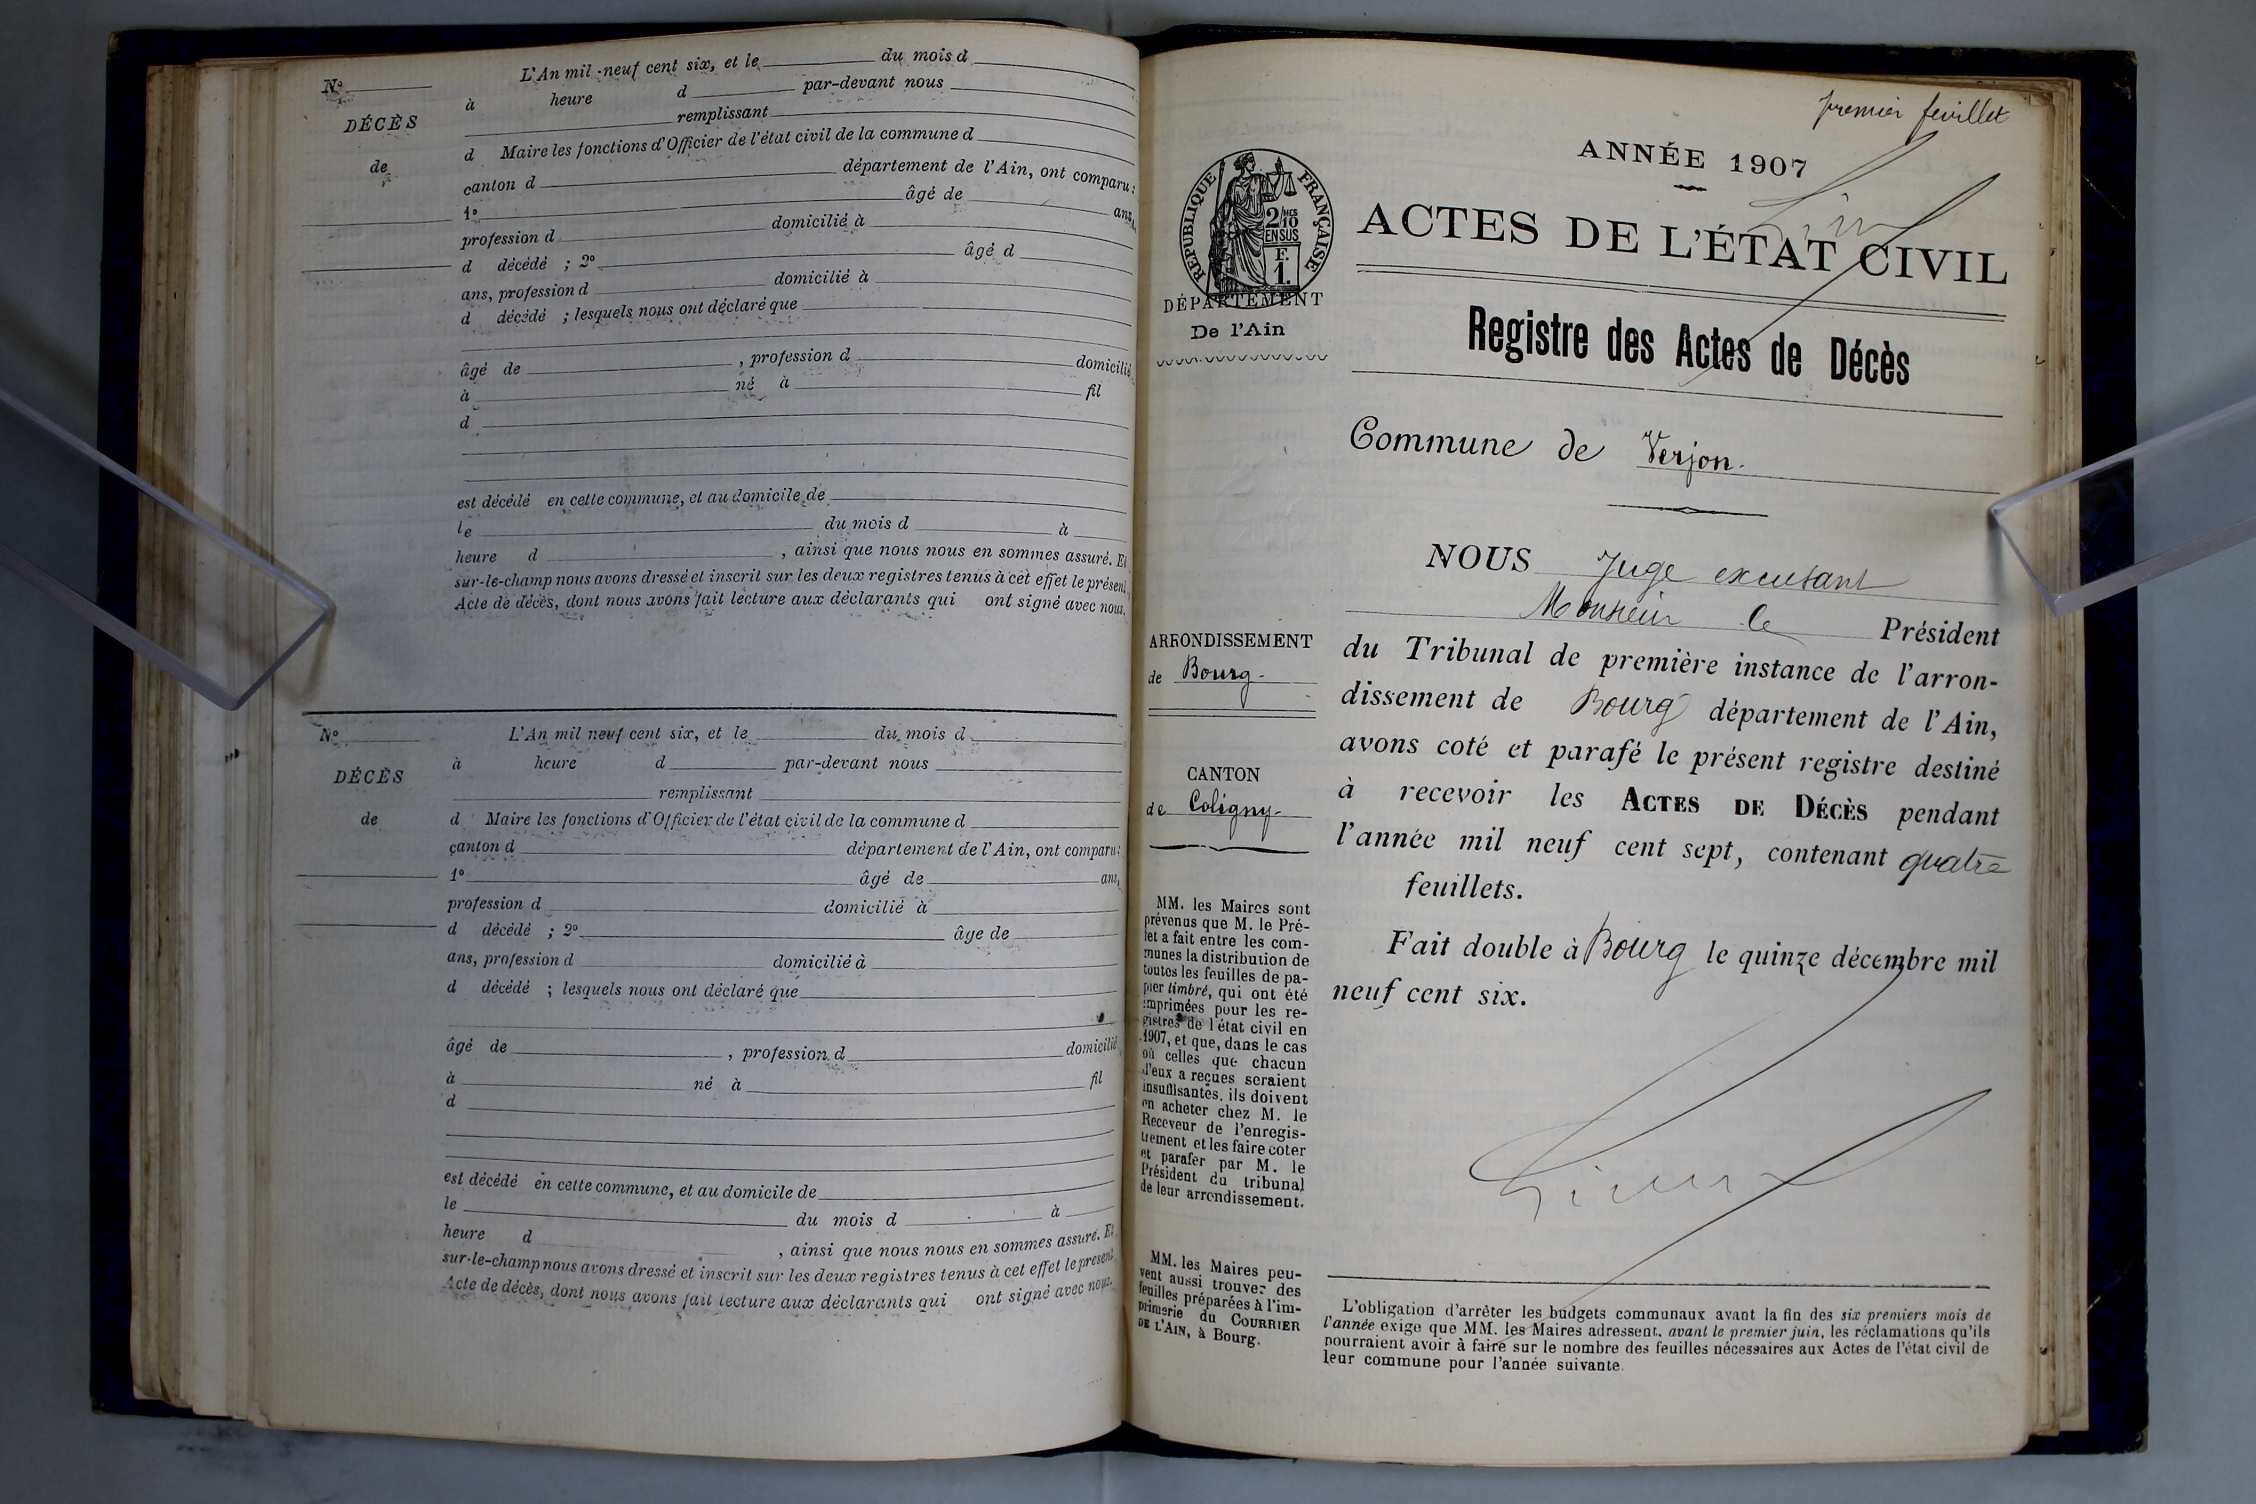 N° L'An mil neuf cent six, et le du mois d
DÉCÈS à heure d par-devant nous
remplissant
de d Maire les fonctions d'Officier de l'état civil de la commune d
canton d département de l'Ain, ont comparu :
1° âgé de ans,
profession d domicilié à
d décédé ; 2° âgé d
ans, profession d domicilié à
d décédé ; lesquels nous ont déclaré que
âgé de , profession d domicilié
à né à fil
d
est décédé en cette commune, et au domicile de
le du mois d à
heure d , ainsi que nous nous en sommes assuré. Et
sur-le-champ nous avons dressé et inscrit sur les deux registres tenus à cet effet le présent
Acte de décès, dont nous avons fait lecture aux déclarants qui ont signé avec nous.
N° L'An mil neuf cent six, et le du mois d
DÉCÈS à heure d par-devant nous
remplissant
de d Maire les fonctions d'Officier de l'état civil de la commune d
canton d département de l'Ain, ont comparu :
1° âgé de ans,
profession d domicilié à
d décédé ; 2° âge de
ans, profession d domicilié à
d décédé ; lesquels nous ont déclaré que
âgé de , profession d domicilié
à né à fil
d
est décédé en cette commune, et au domicile de
le du mois d à
heure d , ainsi que nous nous en sommes assuré. Et
sur-le-champ nous avons dressé et inscrit sur les deux registres tenus à cet effet le présent
Acte de décès, dont nous avons fait lecture aux déclarants qui ont signé avec nous.
premier feuillet
ANNÉE 1907
RÉPUBLIQUE FRANÇAISE
2/10 MES
EN SUS
F.
1.
DÉPARTEMENT
De l'Ain
ACTES DE L'ÉTAT CIVIL
Registre des Actes de Décès
Commune de Verjon.
NOUS Juge excusant
Monsieur le Président
du Tribunal de première instance de l'arron-
dissement de Bourg département de l'Ain,
avons coté et parafé le présent registre destiné
à recevoir les ACTES DE DÉCÈS pendant
l'année mil neuf cent sept, contenant quatre
feuillets.
Fait double à Bourg le quinze décembre mil
neuf cent six.
ARRONDISSEMENT
de Bourg.
CANTON
de Coligny.
MM. les Maires sont
prévenus que M. le Pré-
fet a fait entre les com-
munes la distribution de
toutes les feuilles de pa-
pier timbré, qui ont été
imprimées pour les re-
gistres de l'état civil en
1907, et que, dans le cas
où celles que chacun
d'eux a reçues seraient
insuffisantes, ils doivent
en acheter chez M. le
Receveur de l'enregis-
trement et les faire coter
et parafer par M. le
Président du tribunal
de leur arrondissement.
MM. les Maires peu-
vent aussi trouver des
feuilles préparées à l'im-
primerie du COURRIER
DE L'AIN, à Bourg.
L'obligation d'arrêter les budgets communaux avant la fin des six premiers mois de
l'année exige que MM. les Maires adressent, avant le premier juin, les réclamations qu'ils
pourraient avoir à faire sur le nombre des feuilles nécessaires aux Actes de l'état civil de
leur commune pour l'année suivante.